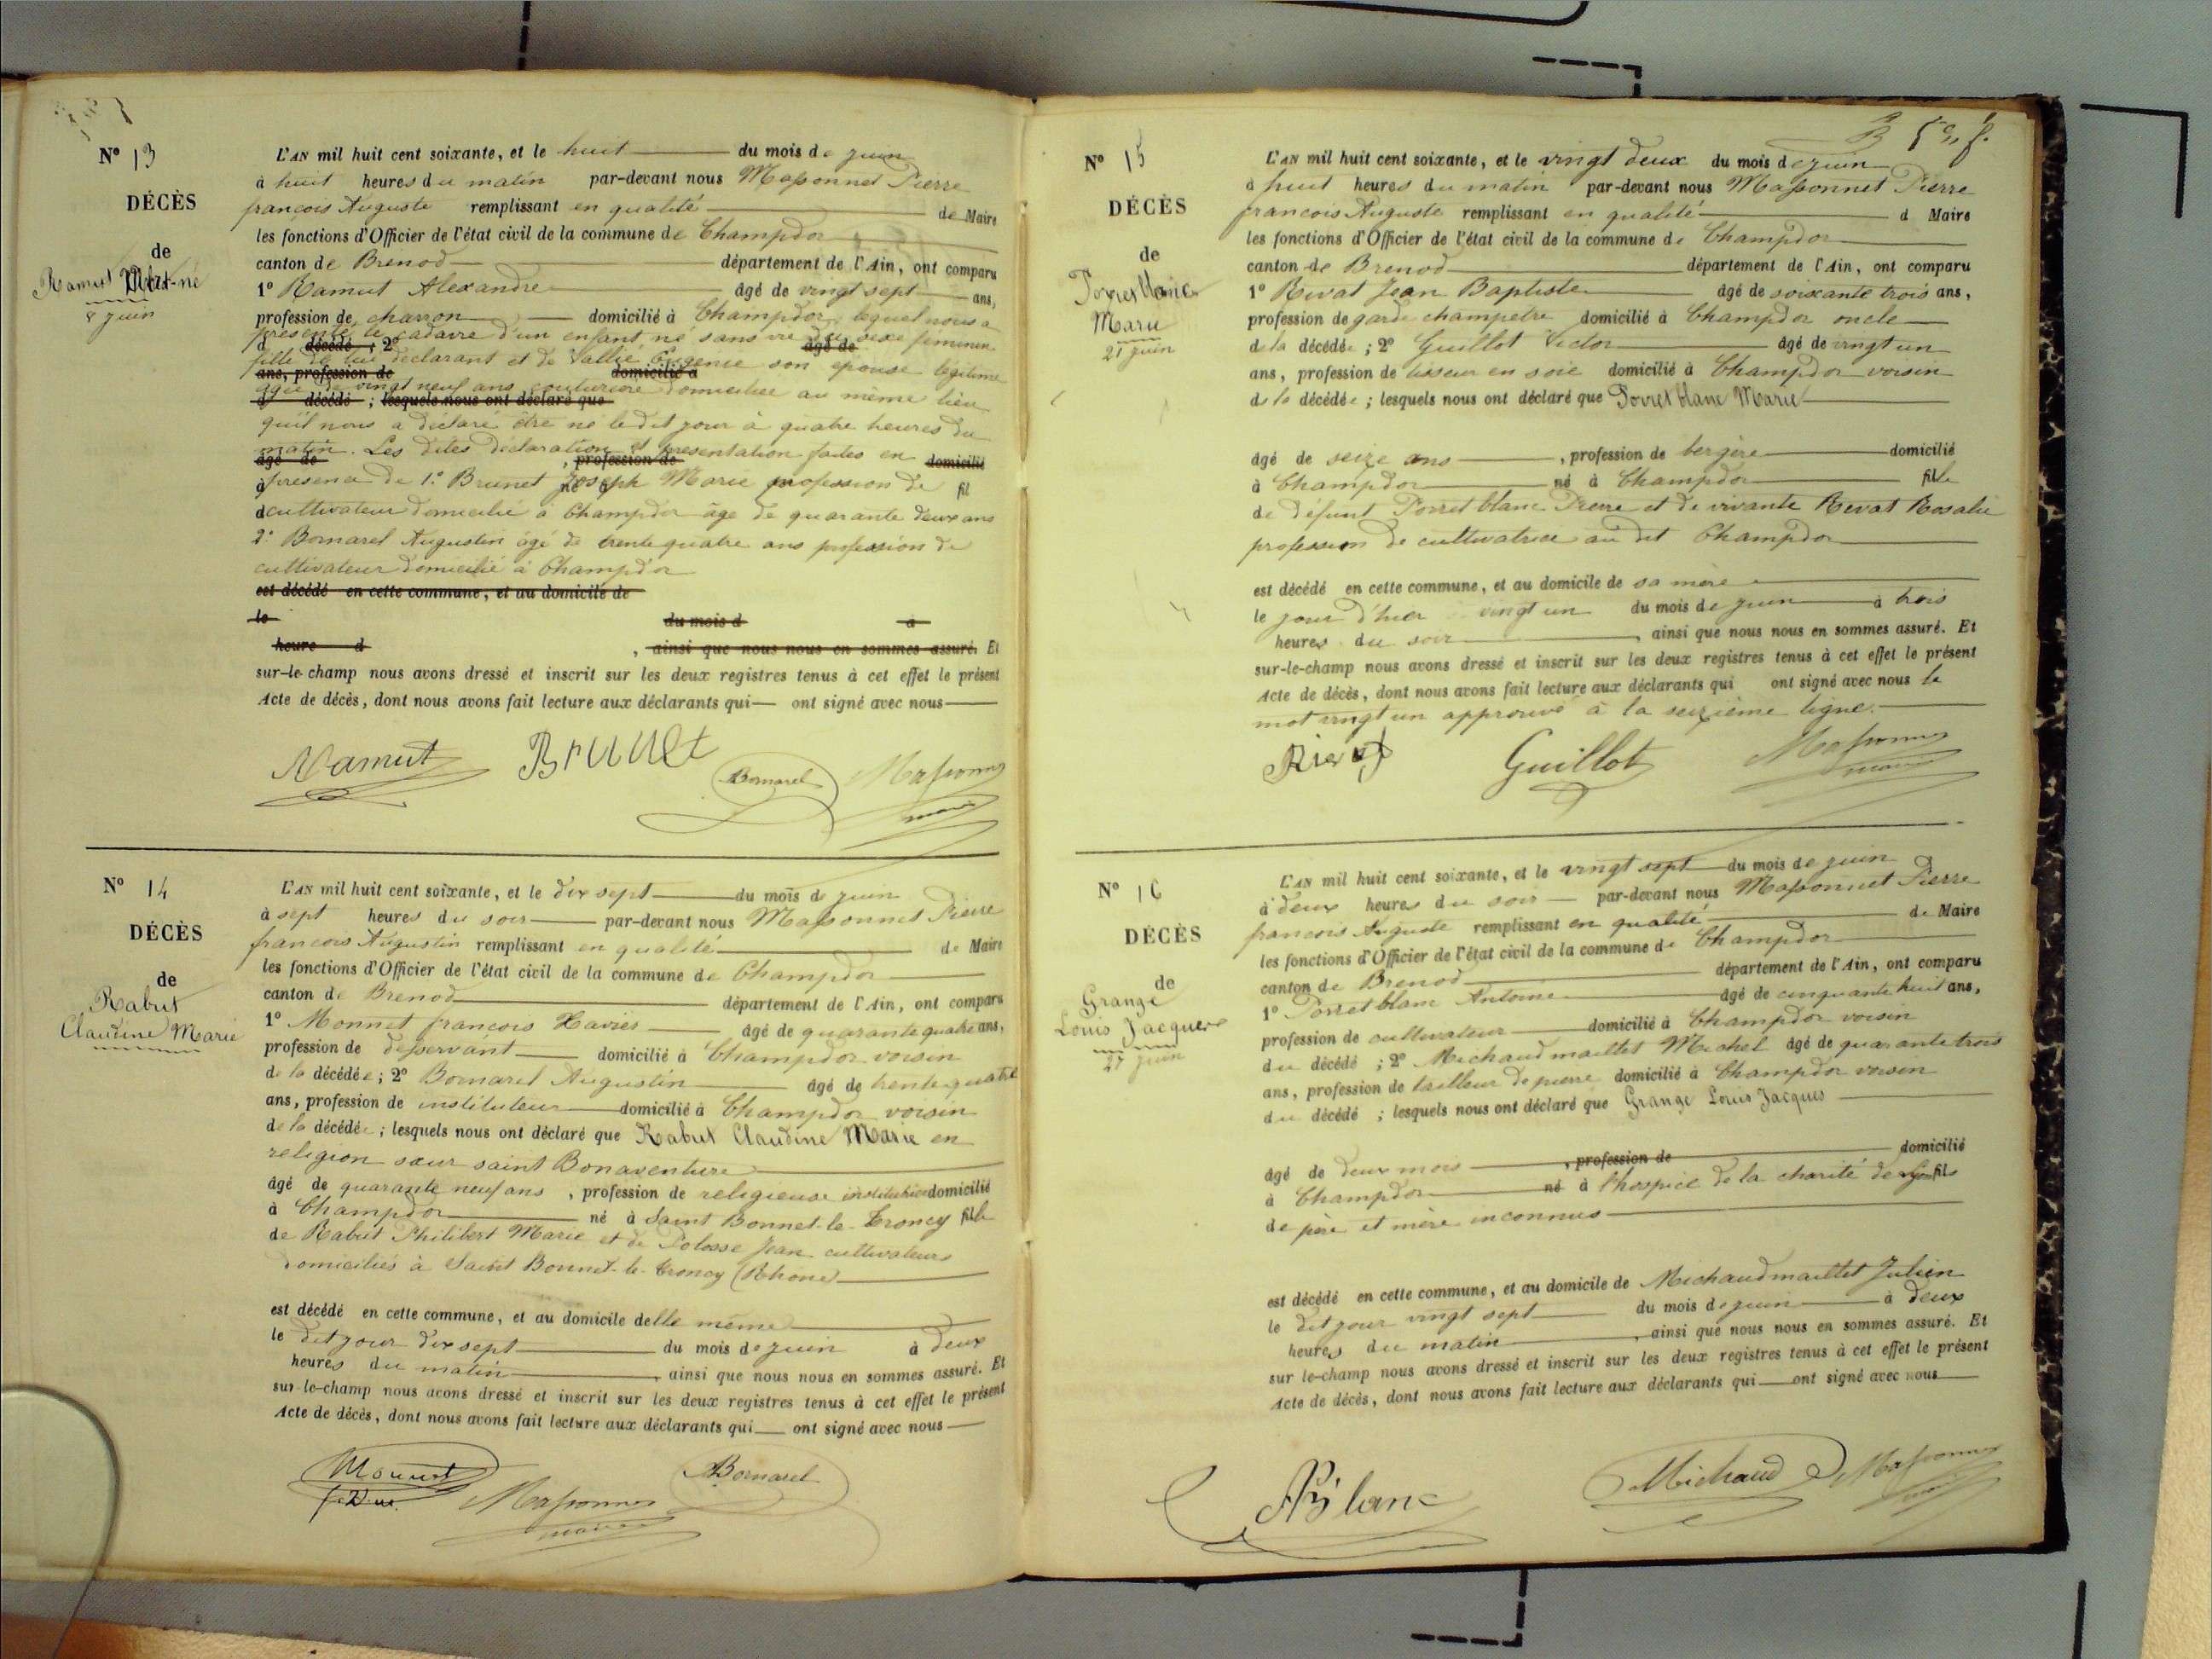 N° 13
DÉCÈS
de
Ramut Mort-né
8 juin
L'AN mil huit cent soixante, et le huit du mois de juin
à huit heures du matin par-devant nous Massonnet Pierre
françois Auguste remplissant en qualité de Maire
les fonctions d'Officier de l'état civil de la commune de Champdor
canton de Brenod département de l'Ain, ont comparu
1° Ramut Alexandre âgé de vingt sept ans,
profession de charron domicilié à Champdor lequel nous a
présenté le cadavre d'un enfant né sans vie du sexe feminin
d décédé ; 2° âgé de
fille de lui déclarant et de Vallié Eugenie son épouse légitime
ans, profession de domicilié à
agée de vingt neuf ans couturiere domiciliée au même lieu
d décédé ; lesquels nous ont déclaré que
qu'il nous a déclaré être né le dit jour à quatre heures du
matin. Les dites déclaration et presentation faites en
âgé de , profession de domicilié
présence de 1° Brunet Joseph Marie profession de
à né à fil
d cultivateur domicilié à Champdor âgé de quarante deux ans
2° Bornarel Augustin âgé de trente quatre ans profession de
cultivateur domicilié à Champdor
est décédé en cette commune, et au domicile de
le du mois d à
heure d , ainsi que nous nous en sommes assuré. Et
sur-le-champ nous avons dressé et inscrit sur les deux registres tenus à cet effet le présent
Acte de décès, dont nous avons fait lecture aux déclarants qui ont signé avec nous
Ramut Brunet Bornarel Massonnet
maire
N° 14
DÉCÈS
de
Rabut
Claudine Marie
L'AN mil huit cent soixante, et le dix sept du mois de juin
à sept heures du soir par-devant nous Massonnet Pierre
francois Augustin remplissant en qualité de Maire
les fonctions d'Officier de l'état civil de la commune de Champdor
canton de Brenod département de l'Ain, ont comparu
1° Monnet francois Xavier âgé de quarante quatre ans,
profession de desservant domicilié à Champdor voisin
de la décédée ; 2° Bornarel Augustin âgé de trente quatre
ans, profession de instituteur domicilié à Champdor voisin
de la décédée ; lesquels nous ont déclaré que Rabut Claudine Marie en
religion sœur saint Bonaventure
âgé de quarante neuf ans , profession de religieuse institutrice domicilié
à Champdor né à Saint Bonnet-le-Troncy fille
de Rabut Philibert Marie et de Polosse Jean cultivateurs
domiciliés à Saint Bonnet-le-Troncy (Rhone)
est décédé en cette commune, et au domicile delle même
le dit jour dix sept du mois de juin à deux
heures du matin , ainsi que nous nous en sommes assuré. Et
sur-le-champ nous avons dressé et inscrit sur les deux registres tenus à cet effet le présent
Acte de décès, dont nous avons fait lecture aux déclarants qui ont signé avec nous
Monnet Massonnet Bornarel
maire
N° 15
DÉCÈS
de
Porret blanc
Marie
21 juin
L'AN mil huit cent soixante, et le vingt deux du mois de juin
à huit heures du matin par-devant nous Massonnet Pierre
francois Auguste remplissant en qualité d Maire
les fonctions d'Officier de l'état civil de la commune de Champdor
canton de Brenod département de l'Ain, ont comparu
1° Rivat Jean Baptiste âgé de soixante trois ans,
profession de garde champetre domicilié à Champdor oncle
de la décédée ; 2° Guillot Victor âgé de vingt un
ans, profession de tisseur en soie domicilié à Champdor voisin
de la décédée ; lesquels nous ont déclaré que Porret blanc Marie
âgé de seize ans , profession de bergère domicilié
à Champdor né à Champdor fille
de défunt Porret blanc Pierre et de vivante Revat Rosalie
profession de cultivatrice au dit Champdor
est décédé en cette commune, et au domicile de sa mère
le jour d'hier vingt un du mois de juin à trois
heures du soir , ainsi que nous nous en sommes assuré. Et
sur-le-champ nous avons dressé et inscrit sur les deux registres tenus à cet effet le présent
Acte de décès, dont nous avons fait lecture aux déclarants qui ont signé avec nous le
mot vingt un approuvé à la seizième ligne.
Rivat Guillot Massonnet
maire
N° 16
DÉCÈS
de
Grange
Louis Jacques
27 juin
L'AN mil huit cent soixante, et le vingt sept du mois de juin
à deux heures du soir par-devant nous Massonnet Pierre
francois Auguste remplissant en qualité de Maire
les fonctions d'Officier de l'état civil de la commune de Champdor
canton de Brenod département de l'Ain, ont comparu
1° Porret blanc Antoine âgé de cinquante huit ans,
profession de cultivateur domicilié à Champdor voisin
du décédé ; 2° Michaud maillet Michel âgé de quarante trois
ans, profession de tailleur de pierre domicilié à Champdor voisin
du décédé ; lesquels nous ont déclaré que Grange Louis Jacques
âgé de deux mois , profession de domicilié
à Champdor né à l'hospice de la charité de Lyon fils
de père et mère inconnus
est décédé en cette commune, et au domicile de Michaud maillet Julien
le dit jour vingt sept du mois de juin à deux
heures du matin , ainsi que nous nous en sommes assuré. Et
sur le-champ nous avons dressé et inscrit sur les deux registres tenus à cet effet le présent
Acte de décès, dont nous avons fait lecture aux déclarants qui ont signé avec nous
Blanc Michaud Massonnet